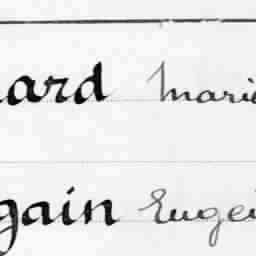 ard Marie
gain Eugei